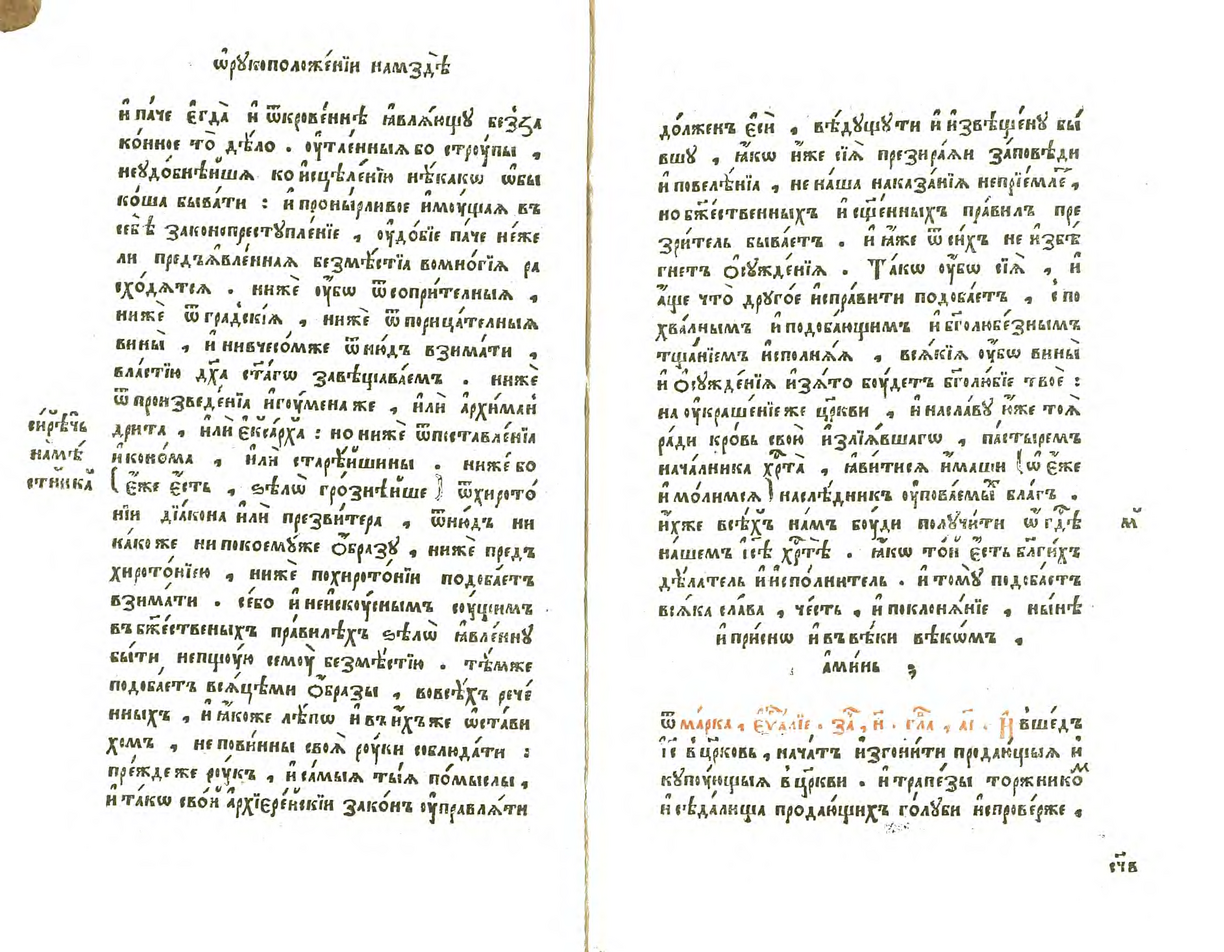 ѡ҆рꙋкоположе́нїи намздѣ̀
и҆ па́че є҆гда̀ и҆ ѿкрове́ннѣ ꙗ҆влѧ́ющꙋ беззⷶа
ко́нное то̀ дѣ́ло . ᲂу҆тае́нныѧ бо стрꙋ́пы ,
неꙋдо́бнѣйшѧ ко и҆сцѣле́нїю нѣ́какѡ ѡ҆бы
ко́ша быва́ти : и҆ проны́рливое и҆мꙋ́щаѧ въ
себѣ̀ законопрестꙋпле́нїе , ᲂу҆до́бїе па́че не́же
ли пред̾ѧвле́ннаѧ безмѣ́стїа вомно́гїѧ ра
схо́дѧтсѧ . нижѐ ᲂу҆́бѡ ѿсопри́телныѧ ,
нижѐ ѿ гра́дскїѧ , нижѐ ѿ порица́телныѧ
вины̀ , и҆ нивчесо́мже ѿню́дъ взима́ти ,
вла́стїю дх҃а ст҃а́гѡ завѣщава́емъ . нижѐ
ѿ произведе́нїа и҆гꙋ́мена же , и҆лѝ а҆рхимаⷩ
дри́та , и҆лѝ є҆кса́рха : но нижѐ ѿпⷭ҇тавле́нїа
и҆коно́ма , и҆лѝ старѣ́йшины . ниже бо
сирѣ́чь
намѣ́
стника
( є҆́же є҆́сть , ѕѣлѡ̀ гро́знѣйше ) ѿхирото́
нїи дїа́кона и҆лѝ презви́тера , ѿню́дъ ни
ка́коже ни покоемꙋ́же ѻ҆́бразꙋ , нижѐ предъ
хирото́нїею , нижѐ похирото́нїи подоба́етъ
взима́ти . се́бо и҆ неискꙋ́снымъ сꙋ́щимъ
въ бж҃е́ственыхъ пра́вилѣхъ ѕѣлѡ̀ ꙗ҆вле́ннꙋ
бы́ти непщꙋ́ю семꙋ̀ безмѣ́стїю . тѣ́мже
подоба́етъ всѧ́цѣми ѻ҆́бразы , вовсѣ́хъ рече́
нныхъ , и҆ ꙗ҆́коже лѣ́пѡ и҆ въ ни́хъже ѡ҆ста́ви
хомъ , не пови́нны своѧ̀ рꙋ́ки соблюда́ти :
пре́жде же рꙋ́къ , и҆ са́мыѧ ты́ѧ по́мыслы ,
и҆ та́кѡ сво́й а҆рхїере́йскїи зако́нъ ᲂу҆правлѧ́ти
до́лженъ є҆сѝ , вѣ́дꙋщꙋ ти и҆ и҆звѣще́нꙋ бы́
вшꙋ , ꙗ҆́кѡ и҆́же сїѧ̀ презира́ѧи за́повѣди
и҆ повелѣ́нїа , не на́ша наказа́нїѧ непрїе́млеⷮ ,
но бж҃е́ственныхъ и҆ сщ҃е́нныхъ пра́вилъ пре
зри́тель быва́етъ . и҆ ꙗ҆́же ѿ си́хъ не и҆збѣ́
гнетъ ѻ҆сꙋжде́нїѧ . Та́кѡ ᲂу҆́бѡ сїѧ̀ , и҆
а҆́ще что̀ дрꙋго́е и҆спра́вити подоба́етъ , с по
хва́лнымъ и҆ подоба́ющимъ и҆ бг҃олюбе́знымъ
тща́нїемъ и҆сполнѧ́ѧ , всѧ́кїѧ ᲂу҆́бѡ вины̀
и҆ ѻ҆сꙋжде́нїѧ и҆зѧ́то бꙋ́детъ бг҃олю́бїе твоѐ :
на ᲂу҆краше́нїе же цр҃кви , и҆ наславꙋ и҆́же тоѧ̀
ра́ди кро́вь свою̀ и҆злїѧ́вшагѡ , па́стыремъ
нача́лника хрⷭ҇та̀ , ꙗ҆ви́тисѧ и҆́маши ( ѡ҆ є҆́же
и҆ мо́лимсѧ ) наслѣ́дникъ ᲂу҆пова́емыⷯ бла́гъ .
и҆́хже всѣ́хъ на́мъ бꙋ́ди полꙋчи́ти ѡ҆ гдⷭ҇ѣ
на́шемъ і҆с҃ѣ хрⷭ҇тѣ̀ . ꙗ҆́кѡ то́й є҆́сть бл҃ги́хъ
дѣ́латель и҆ и҆сполни́тель . и҆ томꙋ̀ подоба́етъ
всѧ́ка сла́ва , че́сть , и҆ поклонѧ́нїе , ны́нѣ
и҆ при́снѡ и҆ въ вѣ́ки вѣкѡ́мъ ,
а҆ми́нь ;
ѿ ма́рка , є҆ѵⷢ҇а́лїе . за҃ , и҃ . гла҃ , а҃і . И҆ вше́дъ
і҆с҃ в цр҃ковь , нача́тъ и҆згони́ти продаю́щыѧ и҆
кꙋпꙋ́ющыѧ в цр҃кви . и҆ трапе́зы торжникоⷨ
и҆ сѣда́лища продаю́щихъ го́лꙋби и҆спрове́рже ,
сч҃в